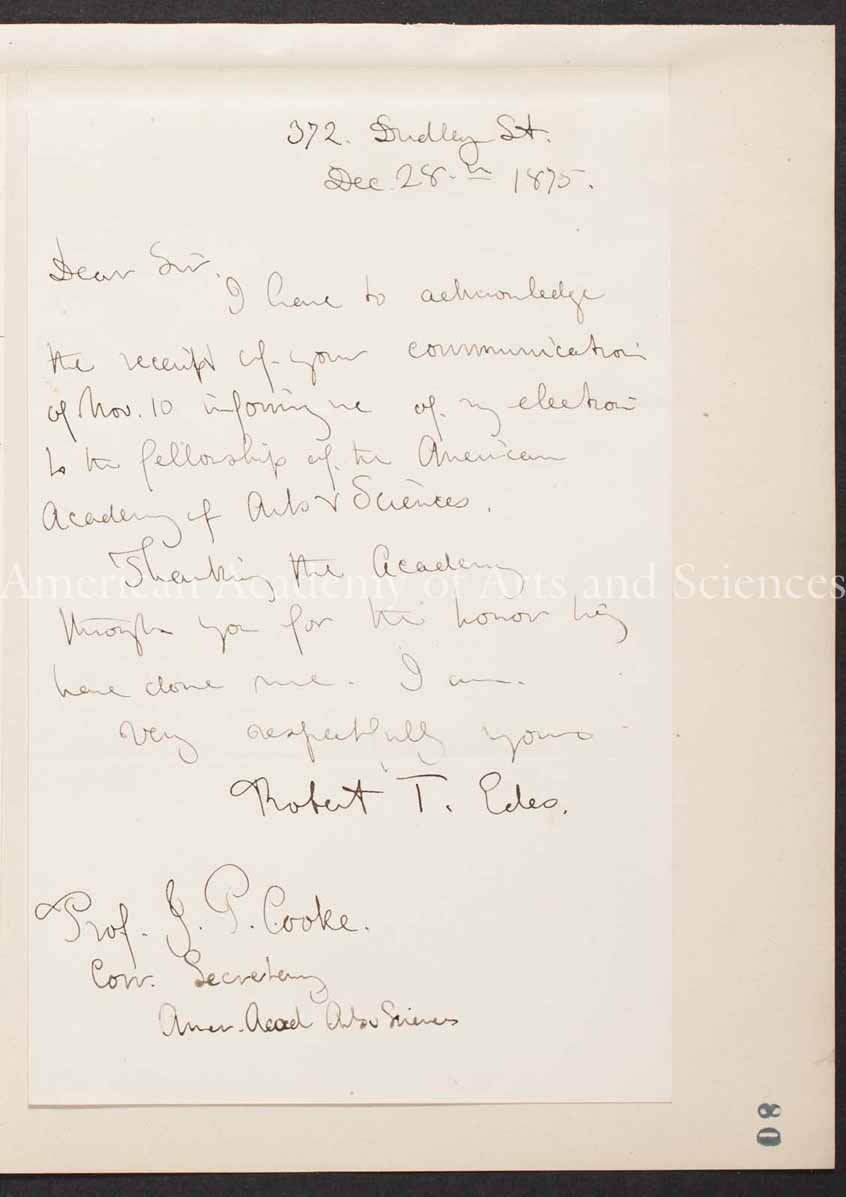 372. Dudley St.
Dec. 28.th 1875.
Dear Sir.
I have to acknowledge
the receipt of your communication
of Nov. 10 informing me of my election
to the fellowship of the American
Academy of Arts & Sciences.
Thanking the Academy
American Academy of Arts and Sciences
through you for the honor they
have done me. I am.
Very respectfully yours
Robert T. Edes.
Prof. J. P. Cooke.
Corr. Secretary
Amer. Acad Arts & Sciences
80